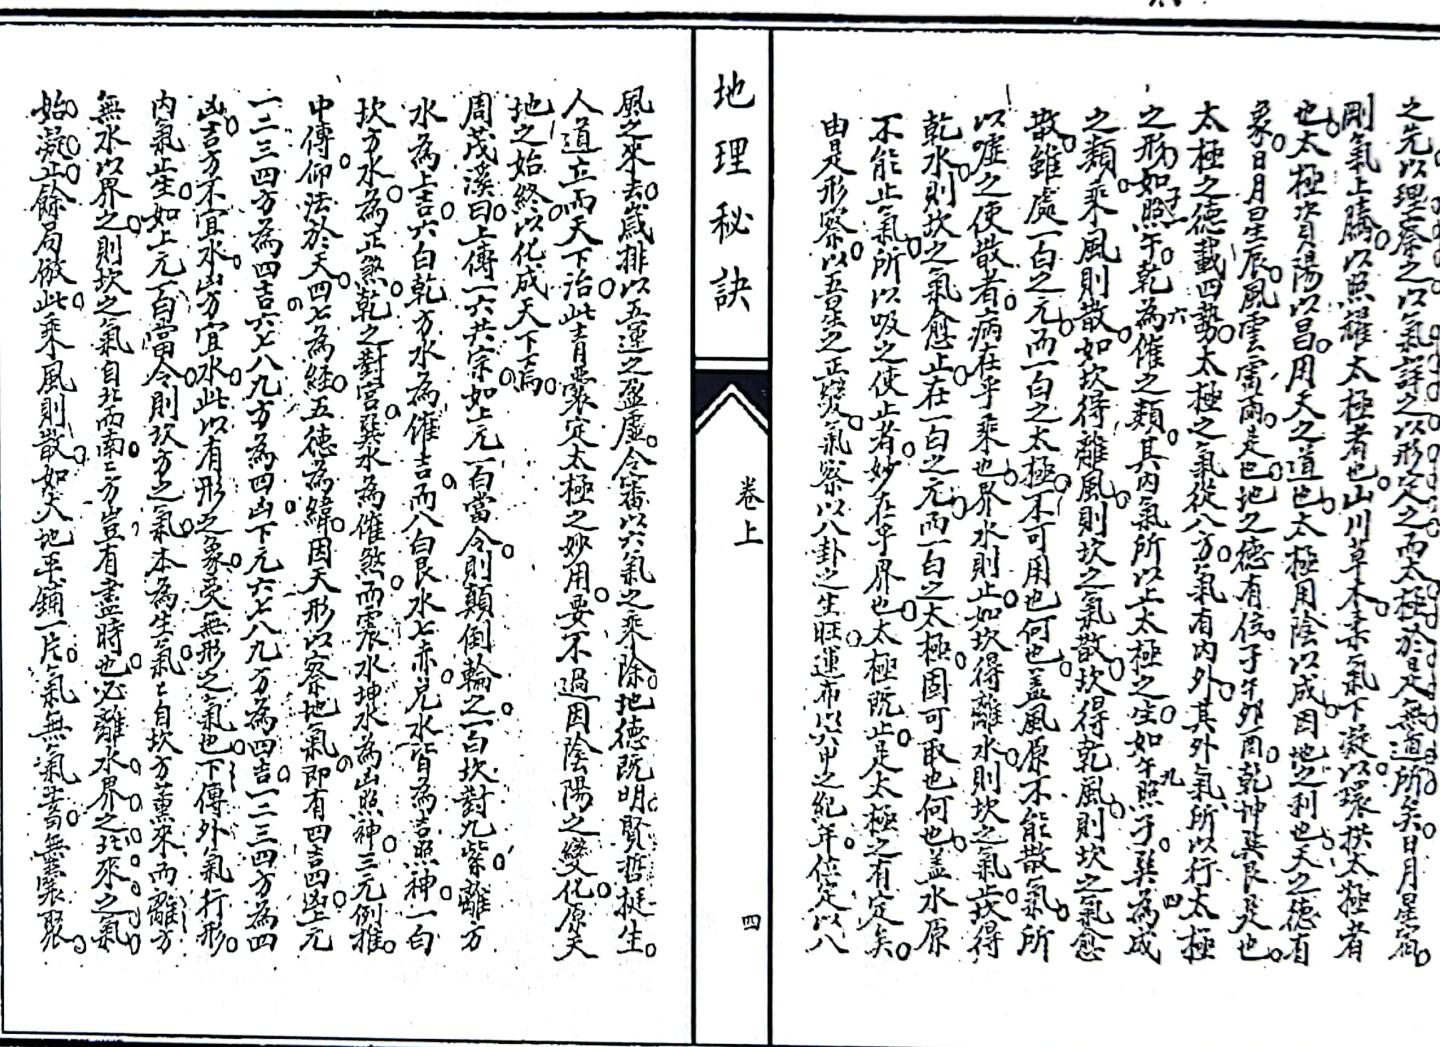 之先以理察之以氣詳之以形定之而太極於是無遁所矣日月星宿
剛氣上騰以照耀太極者也山川草木柔氣下凝以環拱太極者
也太極資陽以昌用天之道也太極用陰以成因地之利也天之德有
象日月星辰風雲雷雨是也地之德有位子午卯酉乾坤巽艮是也
太極之德載四勢太極之氣從八方氣有內外其外氣所以行太極
之形如照午乾為催之類其內氣所以止太極之生如午照子巽為成
子一 六 九 四
之類乘風則散如坎得離風則坎之氣散坎得乾風則坎之氣愈
散雖處一白之元而一白之太極不可用也何也蓋風原不能散氣所
以噓之使散者病在乎乘也界水則止如坎得離水則坎之氣止坎得
乾水則坎之氣愈止在一白之元而一白之太極固可取也何也蓋水原
不能止氣所以吸之使止者妙在乎界也太極既止是太極之有定矣
由是形察以五星之正變氣察以八卦之生旺運布以六甲之紀年位定以八
地理秘訣
卷上
四
風之來去歲排以五運之盈虛令審以六氣之乘除地德既明賢哲挺生
人道立而天下治此青囊定太極之妙用要不過因陰陽之變化原天
地之始終以化成天下焉
周茂溪曰上傳一六共宗如上元一白當令則顛倒輪之一白坎對九紫離方
水為上吉六白乾方水為催吉而八白艮水七赤兌水皆為吉照神一白
坎方水為正煞乾之對宮巽水為催煞而震水坤水為凶照神三元例推
中傳仰法於天四七為經五德為緯因天形以察地氣即有四吉四凶上元
一二三四方為四吉六七八九方為四凶下元六七八九方為四吉一二三四方為四
凶吉方不宜水凶方宜水此以有形之象受無形之氣也下傳外氣行形
內氣止生如上元一白當令則坎方之氣本為生氣氣自坎方薰來而離方
無水以界之則坎之氣自北而南南方豈有盡時也必離水界之北來之氣
始凝止餘局倣此乘風則散如大地平鋪一片氣無氣蓄無囊聚